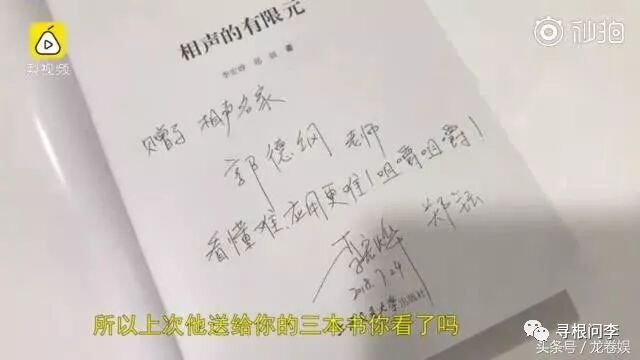 梨视频
秒拍
相声的有限元
李宏烨 郑钰 著
赠 相声名家
郭德纲 老师
看懂难、应用更难！咀嚼咀嚼！
李宏烨 郑钰
2018.7.24
大学出版社
所以上次他送给你的三本书你看了吗
寻根问李
头条号/龙卷娱